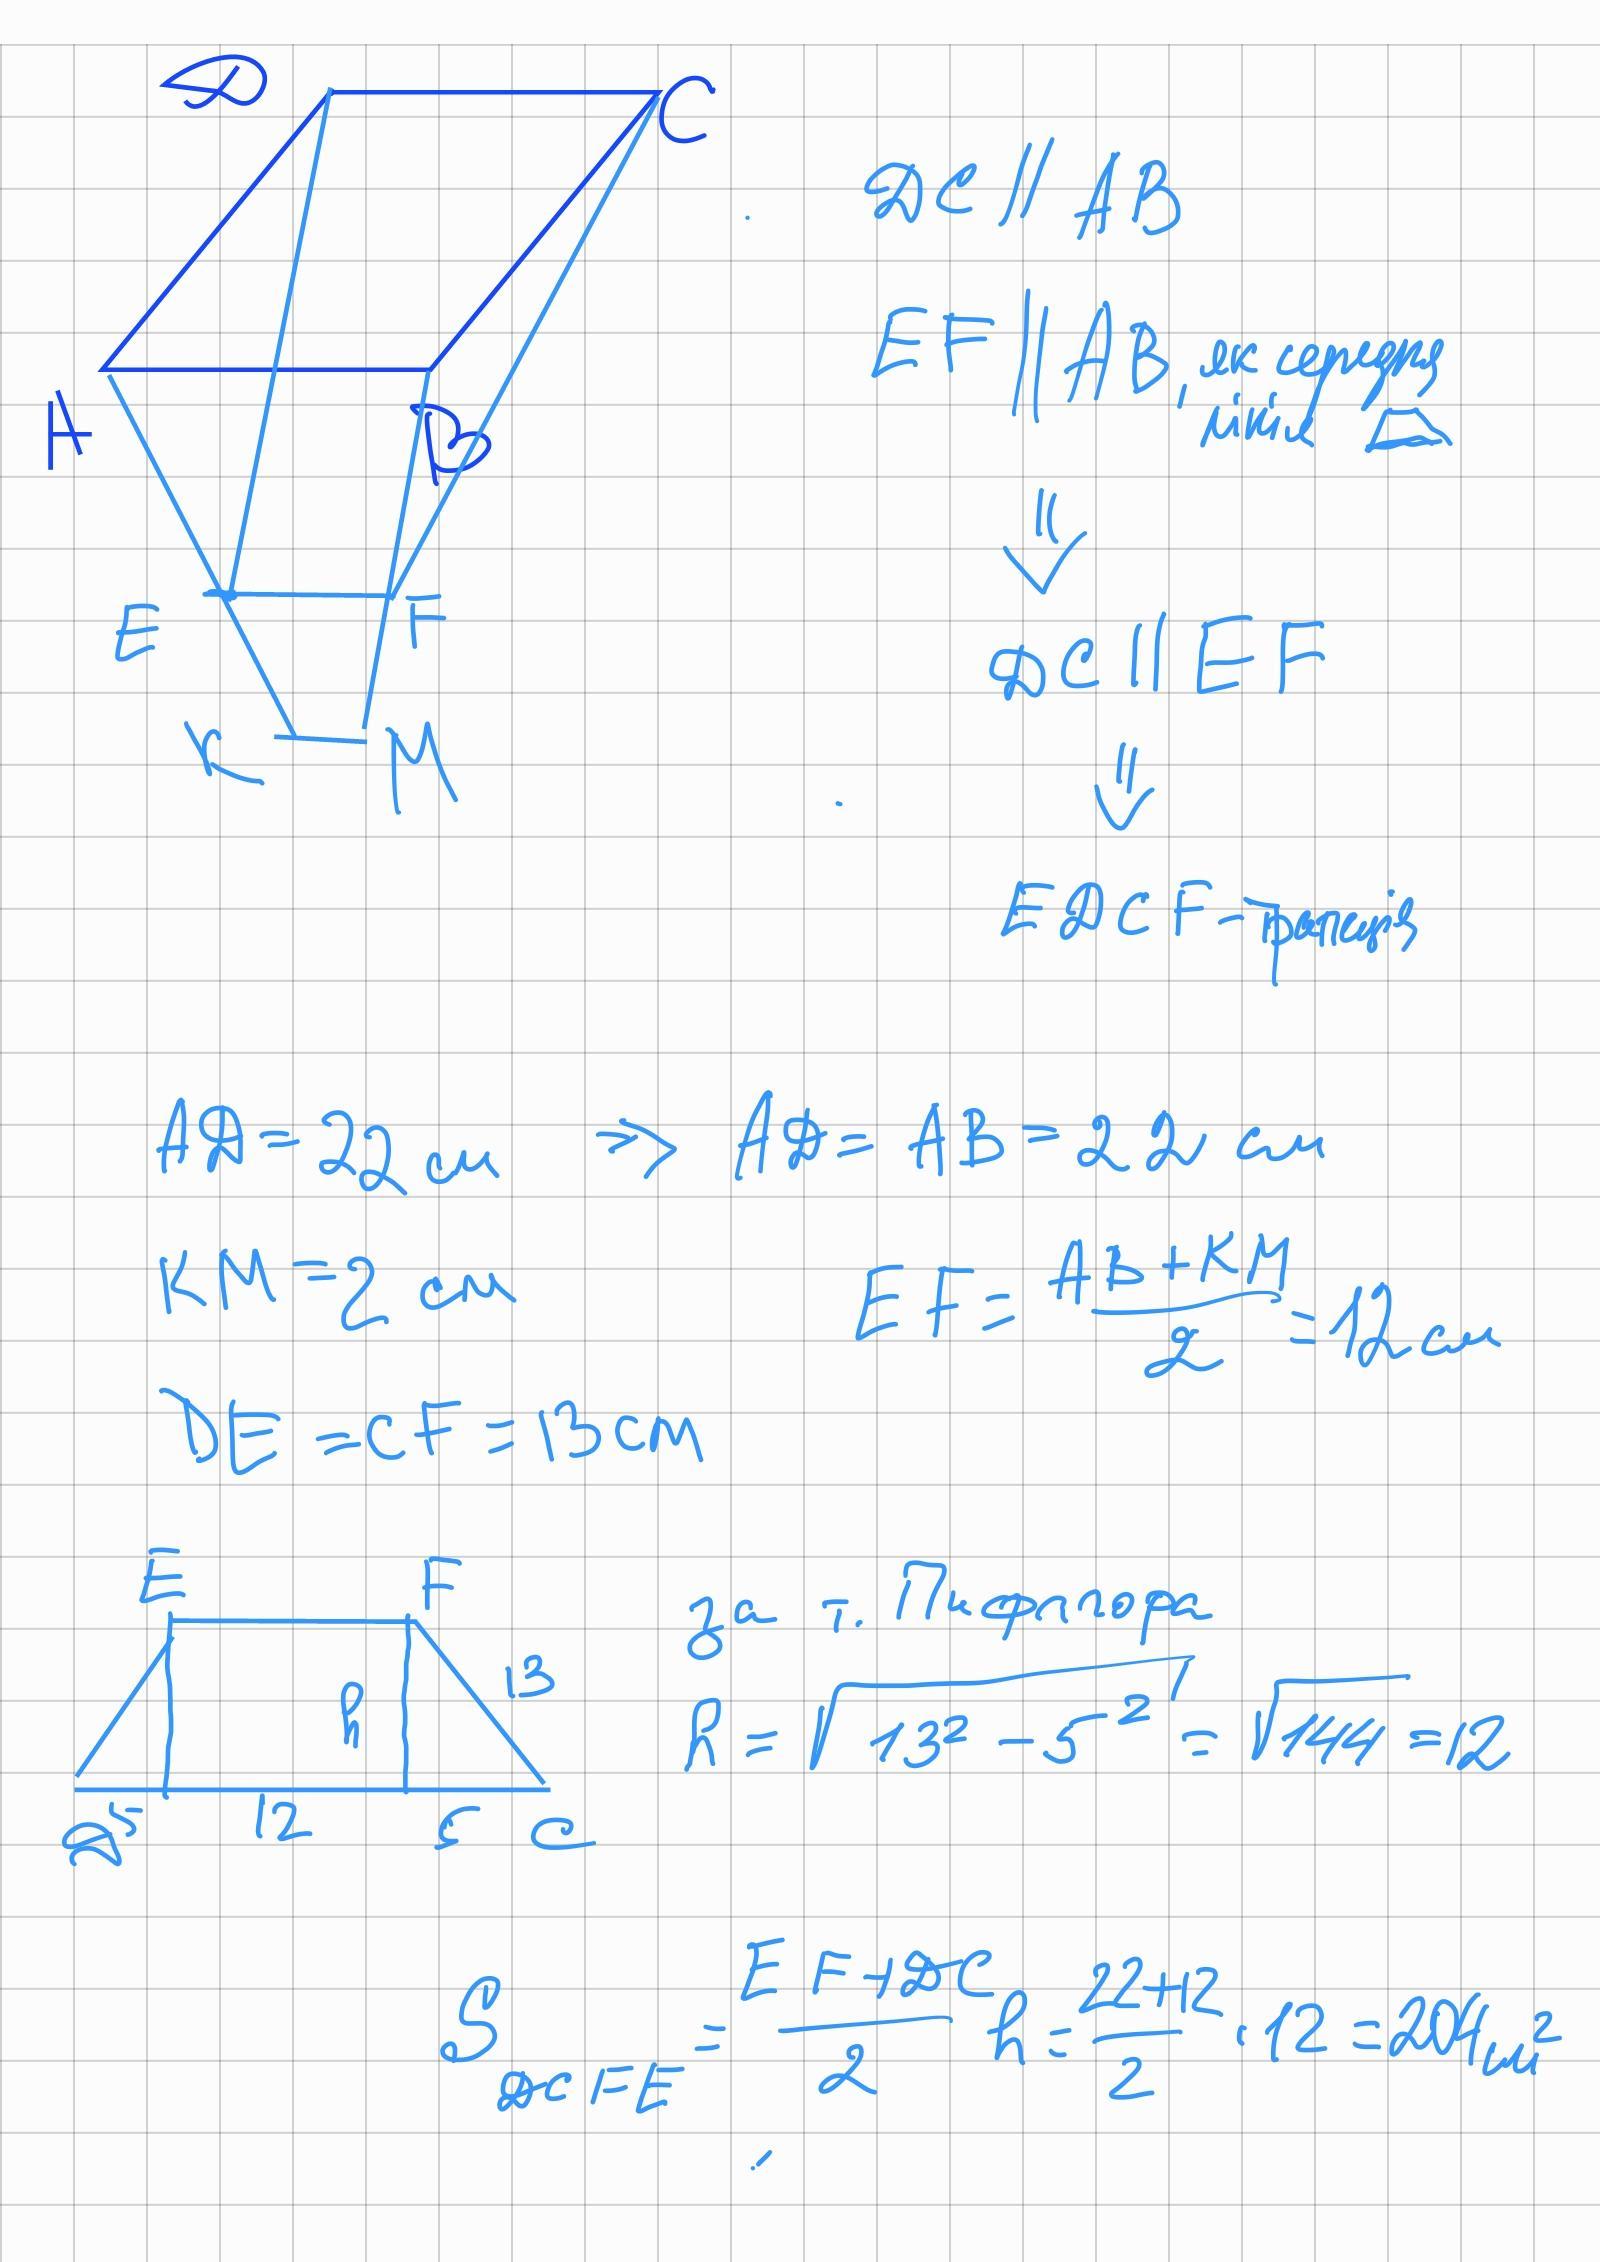 D C
A B
E F
K M
DC || AB
EF || AB, як середня
лінія
⇓
DC || EF
⇓
EDCF - трапеція
AD = 22 см ⇒ AD = AB = 22 см
KM = 2 см EF = (AB + KM)/2 = 12 см
DE = CF = 13 cm
E F
h 13
D 5 12 5 C
за т. Піфагора
h = √(13² - 5²) = √144 = 12
S DCFE = (EF + DC)/2 h = (22+12)/2 · 12 = 204 см²